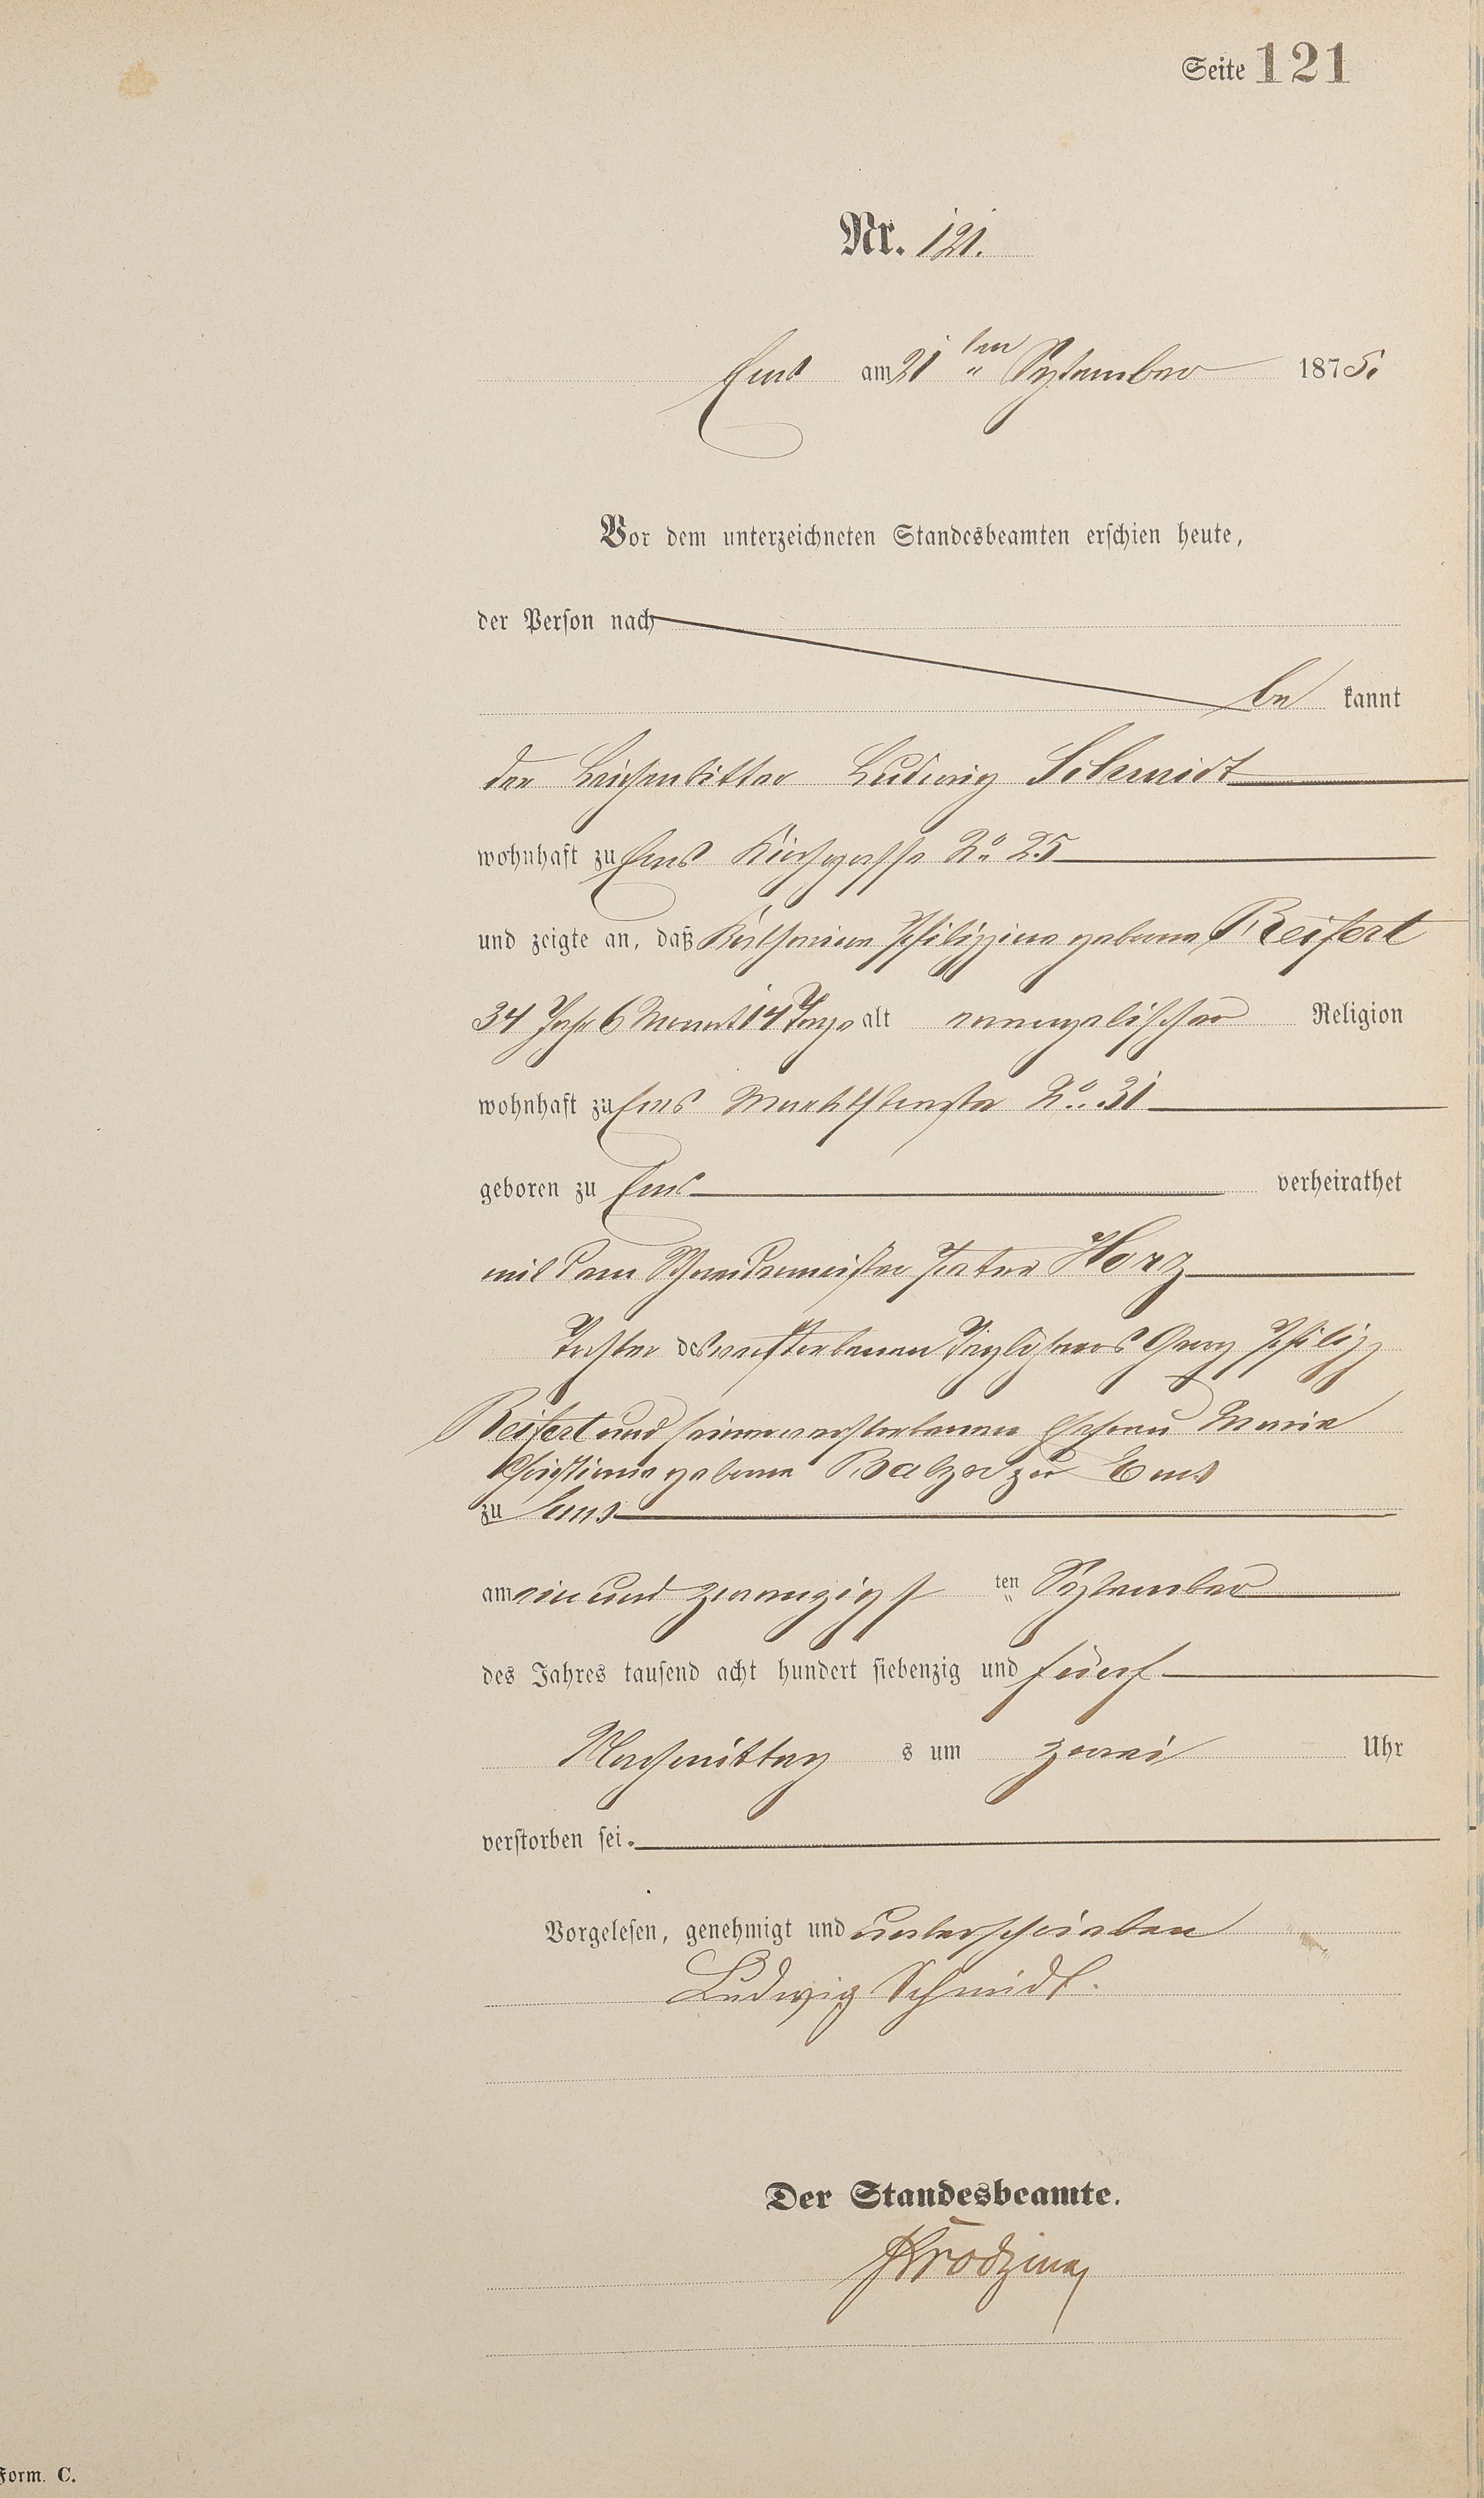 Seite 121
Nr. 121.
Ems am 21 ten " September 1875.
Vor dem unterzeichneten Standesbeamten erschien heute,
der Person nach
be kannt
der Leichenbitter Ludwig Schmidt
wohnhaft zu Ems Kirchgasse No. 25
und zeigte an, daß Katharina Philippina geborne Reifert
34 Jahr 6 Monat 14 Tage alt evangelischer Religion
wohnhaft zu Ems Marktstraße No. 31
geboren zu Ems verheirathet
mit dem Schneidermeister Peter Horz
Tochter des verstorbenen Taglöhners Georg Philipp
Reifert und seiner verstorbenen Ehefrau Maria
Christiana geborne Balzer zu Ems
zu Ems
am ein und zwanzigst ten September
des Jahres tausend acht hundert siebenzig und fünf
Nachmittag s um zwei Uhr
verstorben sei.
Vorgelesen, genehmigt und unterschrieben
Ludwig Schmidt.
Der Standesbeamte.
Form. C.